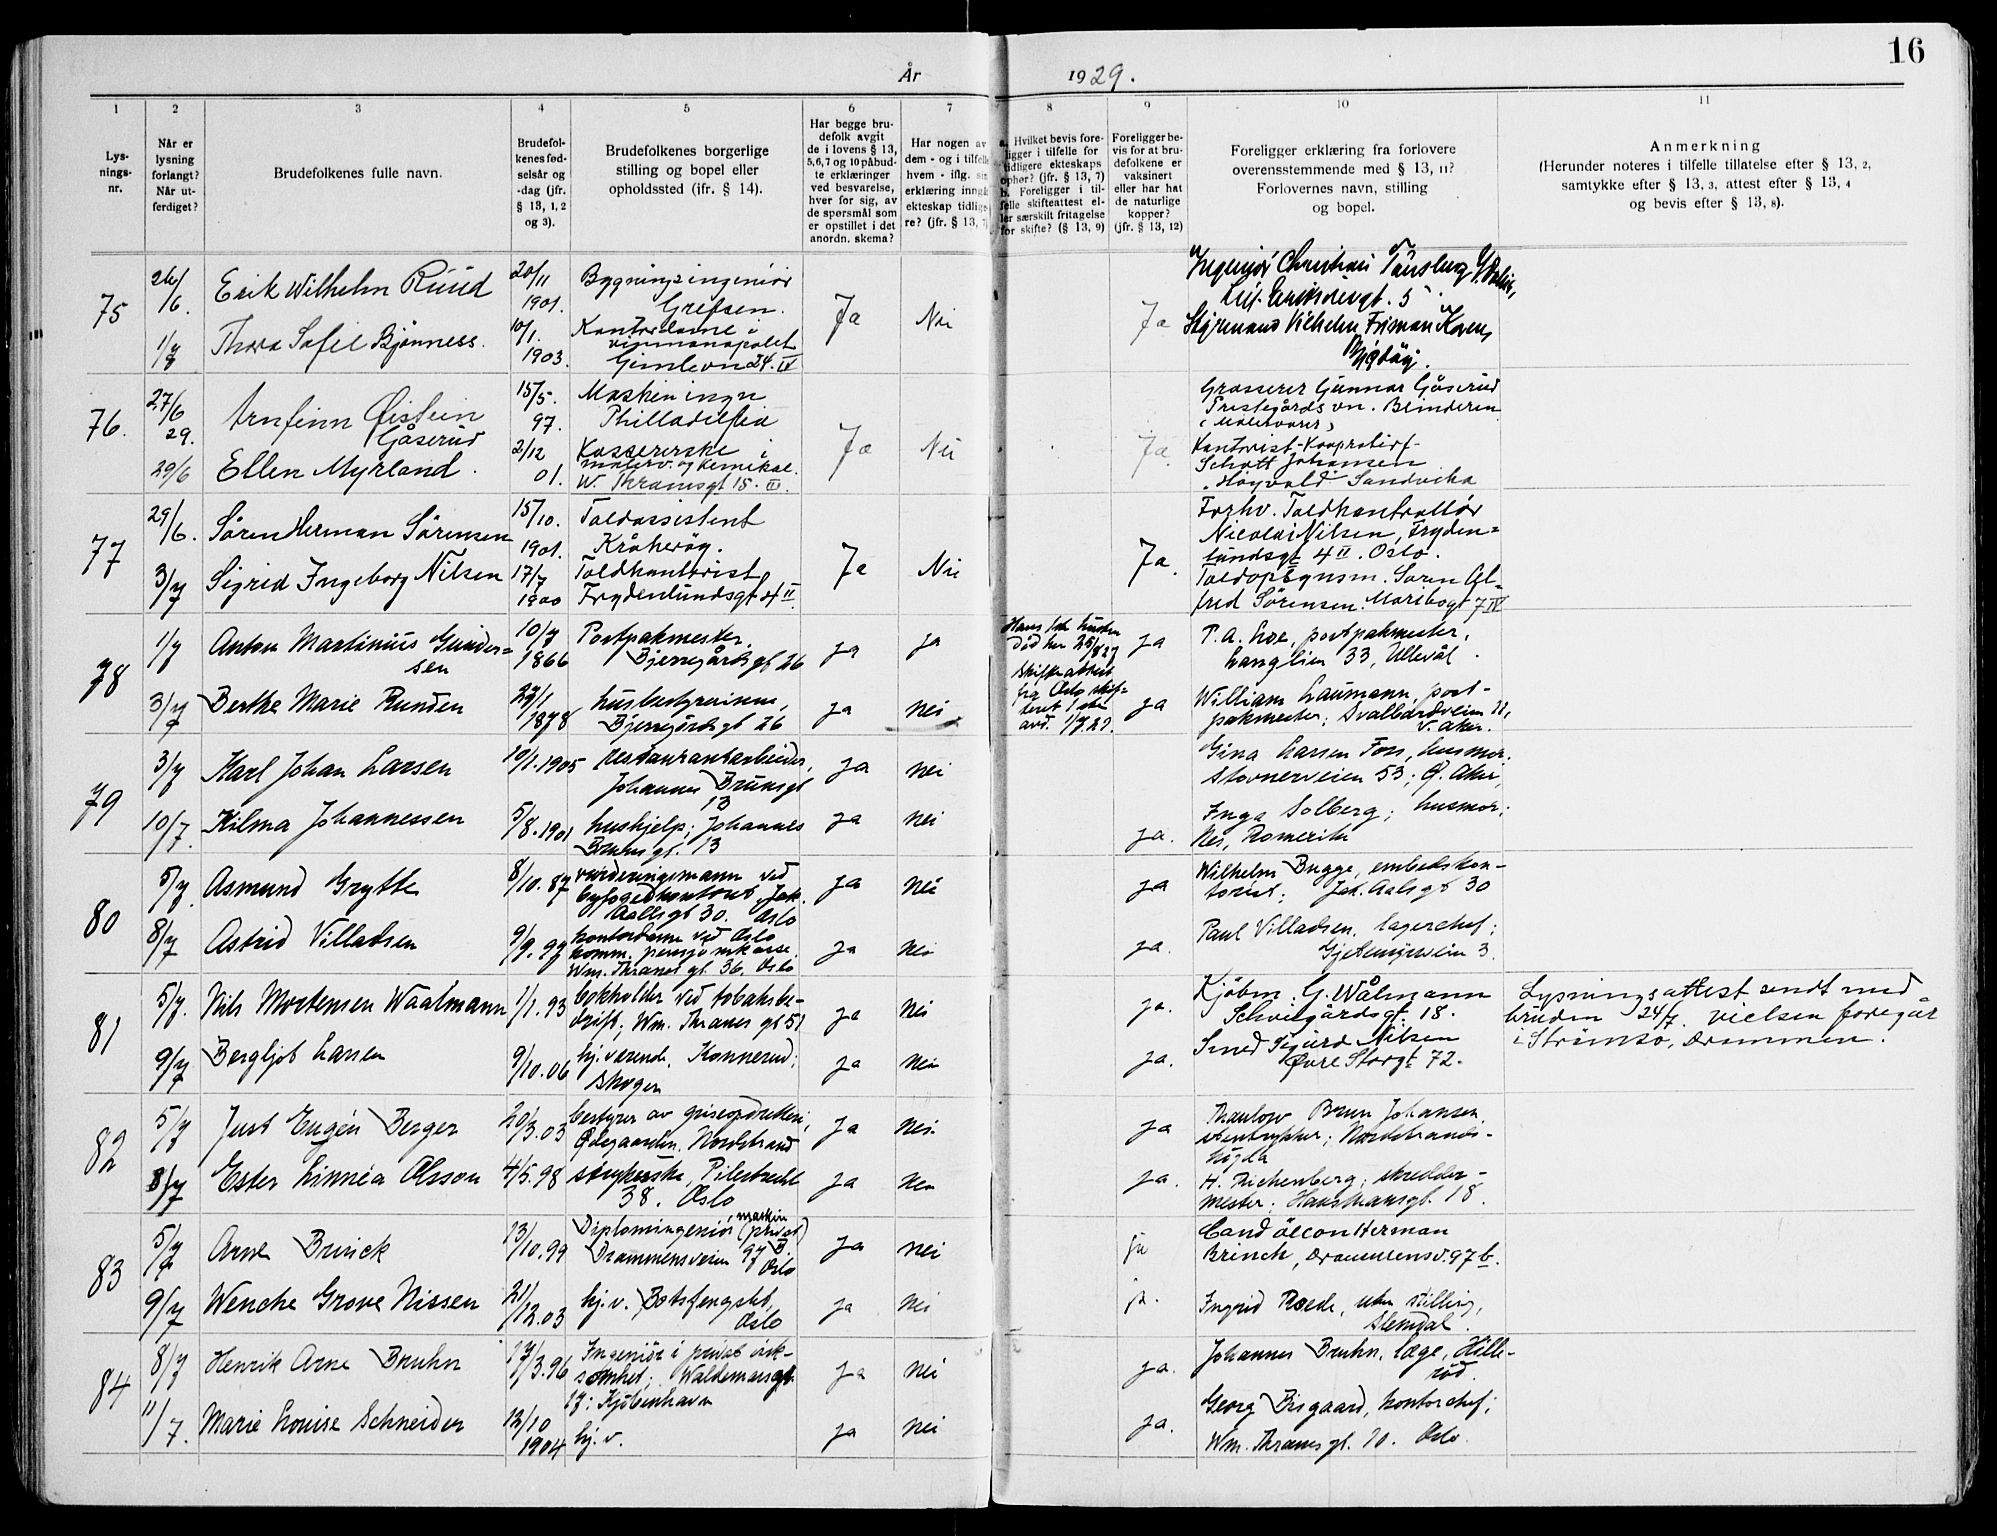 16
År 1929.
1 2 3 4 5 6 7 8 9 10 11
Lys-
nings-
nr.
Når er
lysning
forlangt?
Når ut-
ferdiget?
Brudefolkenes fulle navn.
Brudefol-
kenes fød-
selsår og
-dag (jfr.
§ 13, 1, 2
og 3).
Brudefolkenes borgerlige
stilling og bopel eller
opholdssted (ifr. § 14).
Har begge bru-
defolk avgit
de i lovens § 13,
5, 6, 7 og 10 påbud-
te erklæringer
ved besvarelse,
hver for sig, av
de spørsmål som
er opstillet i det
anordn. skema?
Har nogen av
dem - og i tilfelle
hvem - iflg. sin
erklæring inngå
ekteskap tidlige
re? (jfr. § 13, 7)
a. Hvilket bevis fore-
ligger i tilfelle for
tidligere ekteskaps
ophør? (jfr. § 13, 7)
b. Foreligger i til-
felle skifteattest el-
ler særskilt fritagelse
for skifte? (§ 13, 9)
Foreligger be-
vis for at bru-
defolkene er
vaksinert
eller har hat
de naturlige
kopper?
(jfr. § 13, 12)
Foreligger erklæring fra forlovere
overensstemmende med § 13, 11?
Forlovernes navn, stilling
og bopel.
Anmerkning
(Herunder noteres i tilfelle tillatelse efter § 13, 2,
samtykke efter § 13, 3, attest efter § 13, 4
og bevis efter § 13, 8).
75
26/6.
Erik Wilhelm Ruud
20/11
1901.
Bygningsingeniør
Grefsen.
Ja
Nei
Ja
Ingeniør Christian Tønsberg
Leif Eriksøns gt. 5
1/7
Thora Sofie Bjønness.
10/1.
1903.
Kontordame i
vinmonopolet
Gimlevn 24. IV
Styrmand Vilhelm Friman Koren,
Bygdøy.
76.
27/6
29.
Arnfinn Øistein
Gåserud
15/5.
97.
Maskiningn
Philladelfia
Ja
Nei
Ja.
Grosserer Gunnar Gåserud
Prestegårds vn. Blinderen
29/6
Ellen Myrland.
2/12
01.
Kassererske i
malerv. og kemikal.
W. Thranesgt 15. III.
Kontorist
Schøtt Johansen
Høyvold Sandvika
77
29/6.
Søren Herman Sørensen
15/10.
1901.
Toldassistent
Kråkerøy.
Ja
Nei
Ja.
Forhv. Toldkontrollør
Nicolai Nilsen, Fryden=
lundsgt 4 II. Oslo.
3/7
Sigrid Ingeborg Nilsen
17/7
1900
Toldkontorist
Frydenlundsgt 4 II.
Toldopsynsm. Søren Al=
fred Sørensen. Maribogt 7 IV
78
1/7
Anton Martinius Gunder=
sen
10/7
1866
Postpakmester,
Bjerregårds gt 26
ja
ja
Hans 1ste hustru
død her 25/8 27
Skifteattest
fra Oslo skif=
teret 1 ste
avd. 1/7.29.
ja
P. A. Loe, postpakmester,
Langlien 33, Ullevål.
3/7
Berthe Marie Runden
1878
husbestyrerinne,
Bjerregårds gt 26
ja
nei
ja
William Laumann, post-
pakmester; Svalbardveien 11,
V. Aker.
79
3/7
Karl Johan Larsen
10/1.1905
restaurantarbeider,
Johannes Brunsgt
13
ja
nei
Gina Larsen Foss, husmor.
Stovnerveien 53; Ø. Aker,
10/7.
Hilma Johannessen
5/8.1901
hushjelp; Johannes
Bruns gt. 13
ja
nei
ja.
Inga Solberg; husmor;
Nes, Romerike
80
5/7.
Asmund Grytte
8/10.87
vurderingsmann ved
byfogedkontoret, Jak.
Aallsgt 30. Oslo
ja
nei
ja
Wilhelm Bugge, embedskon-
torist; Jak. Aalsgt 30
8/7
Astrid Villadsen
9/9.99
kontordame ved Oslo
komm. pensjonskasse.
Wm. Thranes gt. 36. Oslo
ja
nei
ja.
Paul Villadsen, lagerchef;
3.
81
5/7.
Nils Mortensen Waalmann
1/1.93
bokholder ved tobaksbe-
drift; Wm. Thranes gt 51
ja
nei
ja.
Kjøbm. G. Wålmann
Schweigårdsgt. 18.
Lysningsattest sendt med
bruden 24/7. vielsen foregår
i Strømsø, Drammen.
9/7
Bergljot Larsen
9/10.06
hj. værende, Konnerud;
Skoger
ja
nei
ja.
Smed Sigurd Nilsen
Øvre Storgt. 72.
82
5/7
Just Eugén Berger
20/3.03
bestyrer av griseopdretteri,
Ødegaarden. Nordstrand
ja
nei.
ja
Thaulow Bruun Johansen
stentrykker; Nordstrands-
høgda
8/7
Ester Linnéa Olsson
4/5.98
strykerske, Pilestredet
38. Oslo
ja
nei
ja.
H. Richenberg; skredder-
mester; Hausmansgt. 18.
83
5/7
Arne Brinck
13/10.99
Diplomingeniør, maskin
(privat)
Drammensveien 97 B
Oslo
ja
nei
ja
Cand öecon Herman
Brinck, Drammensv. 97 b.
9/7
Wenche Grove Nissen
21/12.03
hj.v. Botsfengslet,
Oslo
ja
nei
ja.
Ingrid Roede, uten stilling,
Slemdal.
84
8/7
Henrik Arne Bruhn
17/3.96
Ingeniør i privat virk-
somhet; Waldemarsgt.
17; Kjøbenhavn
ja
nei
ja.
Johannes Bruhn, læge, Hille-
rød.
11/7.
Marie Louise Schneider
13/10
1904
hj.v.
ja
nei
ja.
Georg Bisgaard, kontorchef;
Wm. Thranes gt. 70. Oslo.